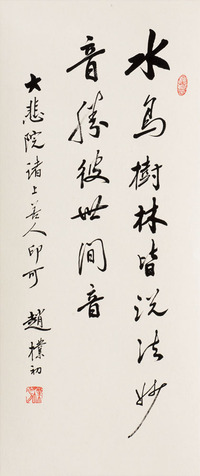 水鳥樹林皆説法妙
音勝彼世間音
大悲院诸上善人印可
趙樸初